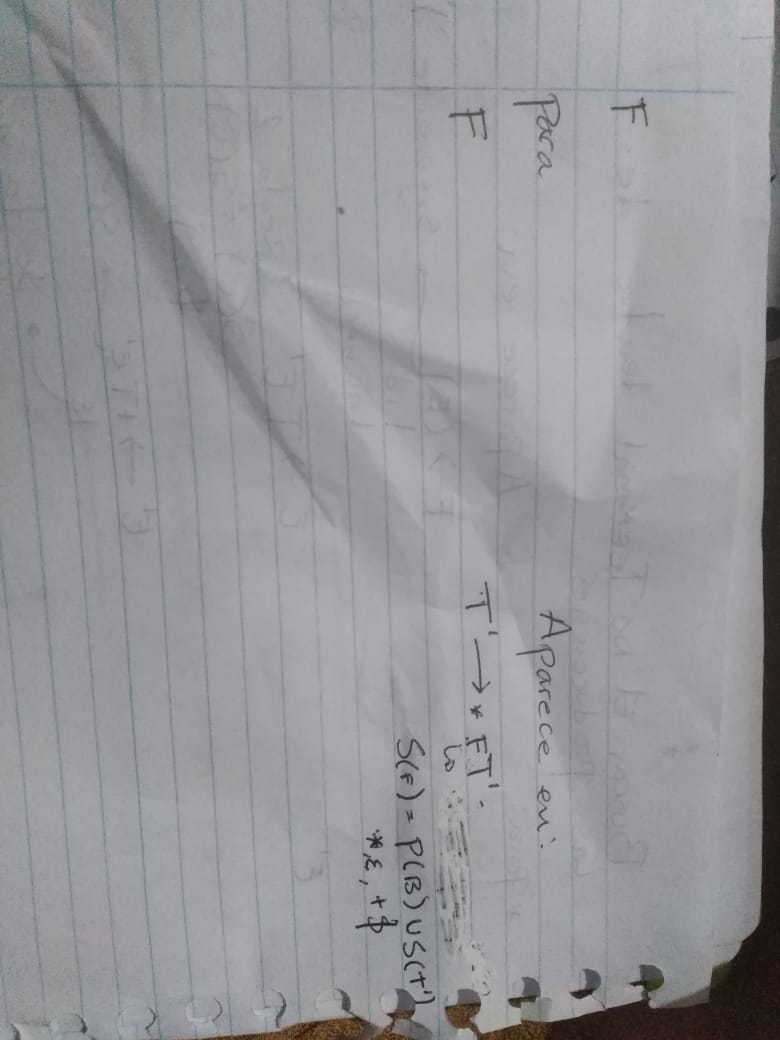 F
Para Aparece en:
F T' → * FT'.
S(F) = P(B) U S(T')
*, ε, + $